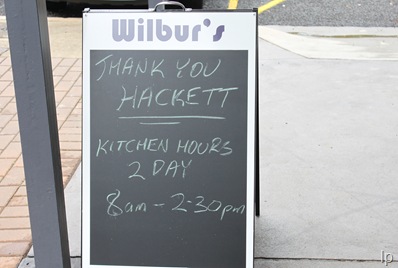 Wilbur's
THANK YOU
HACKETT
KITCHEN HOURS
2 DAY
8am - 2-30pm
lp